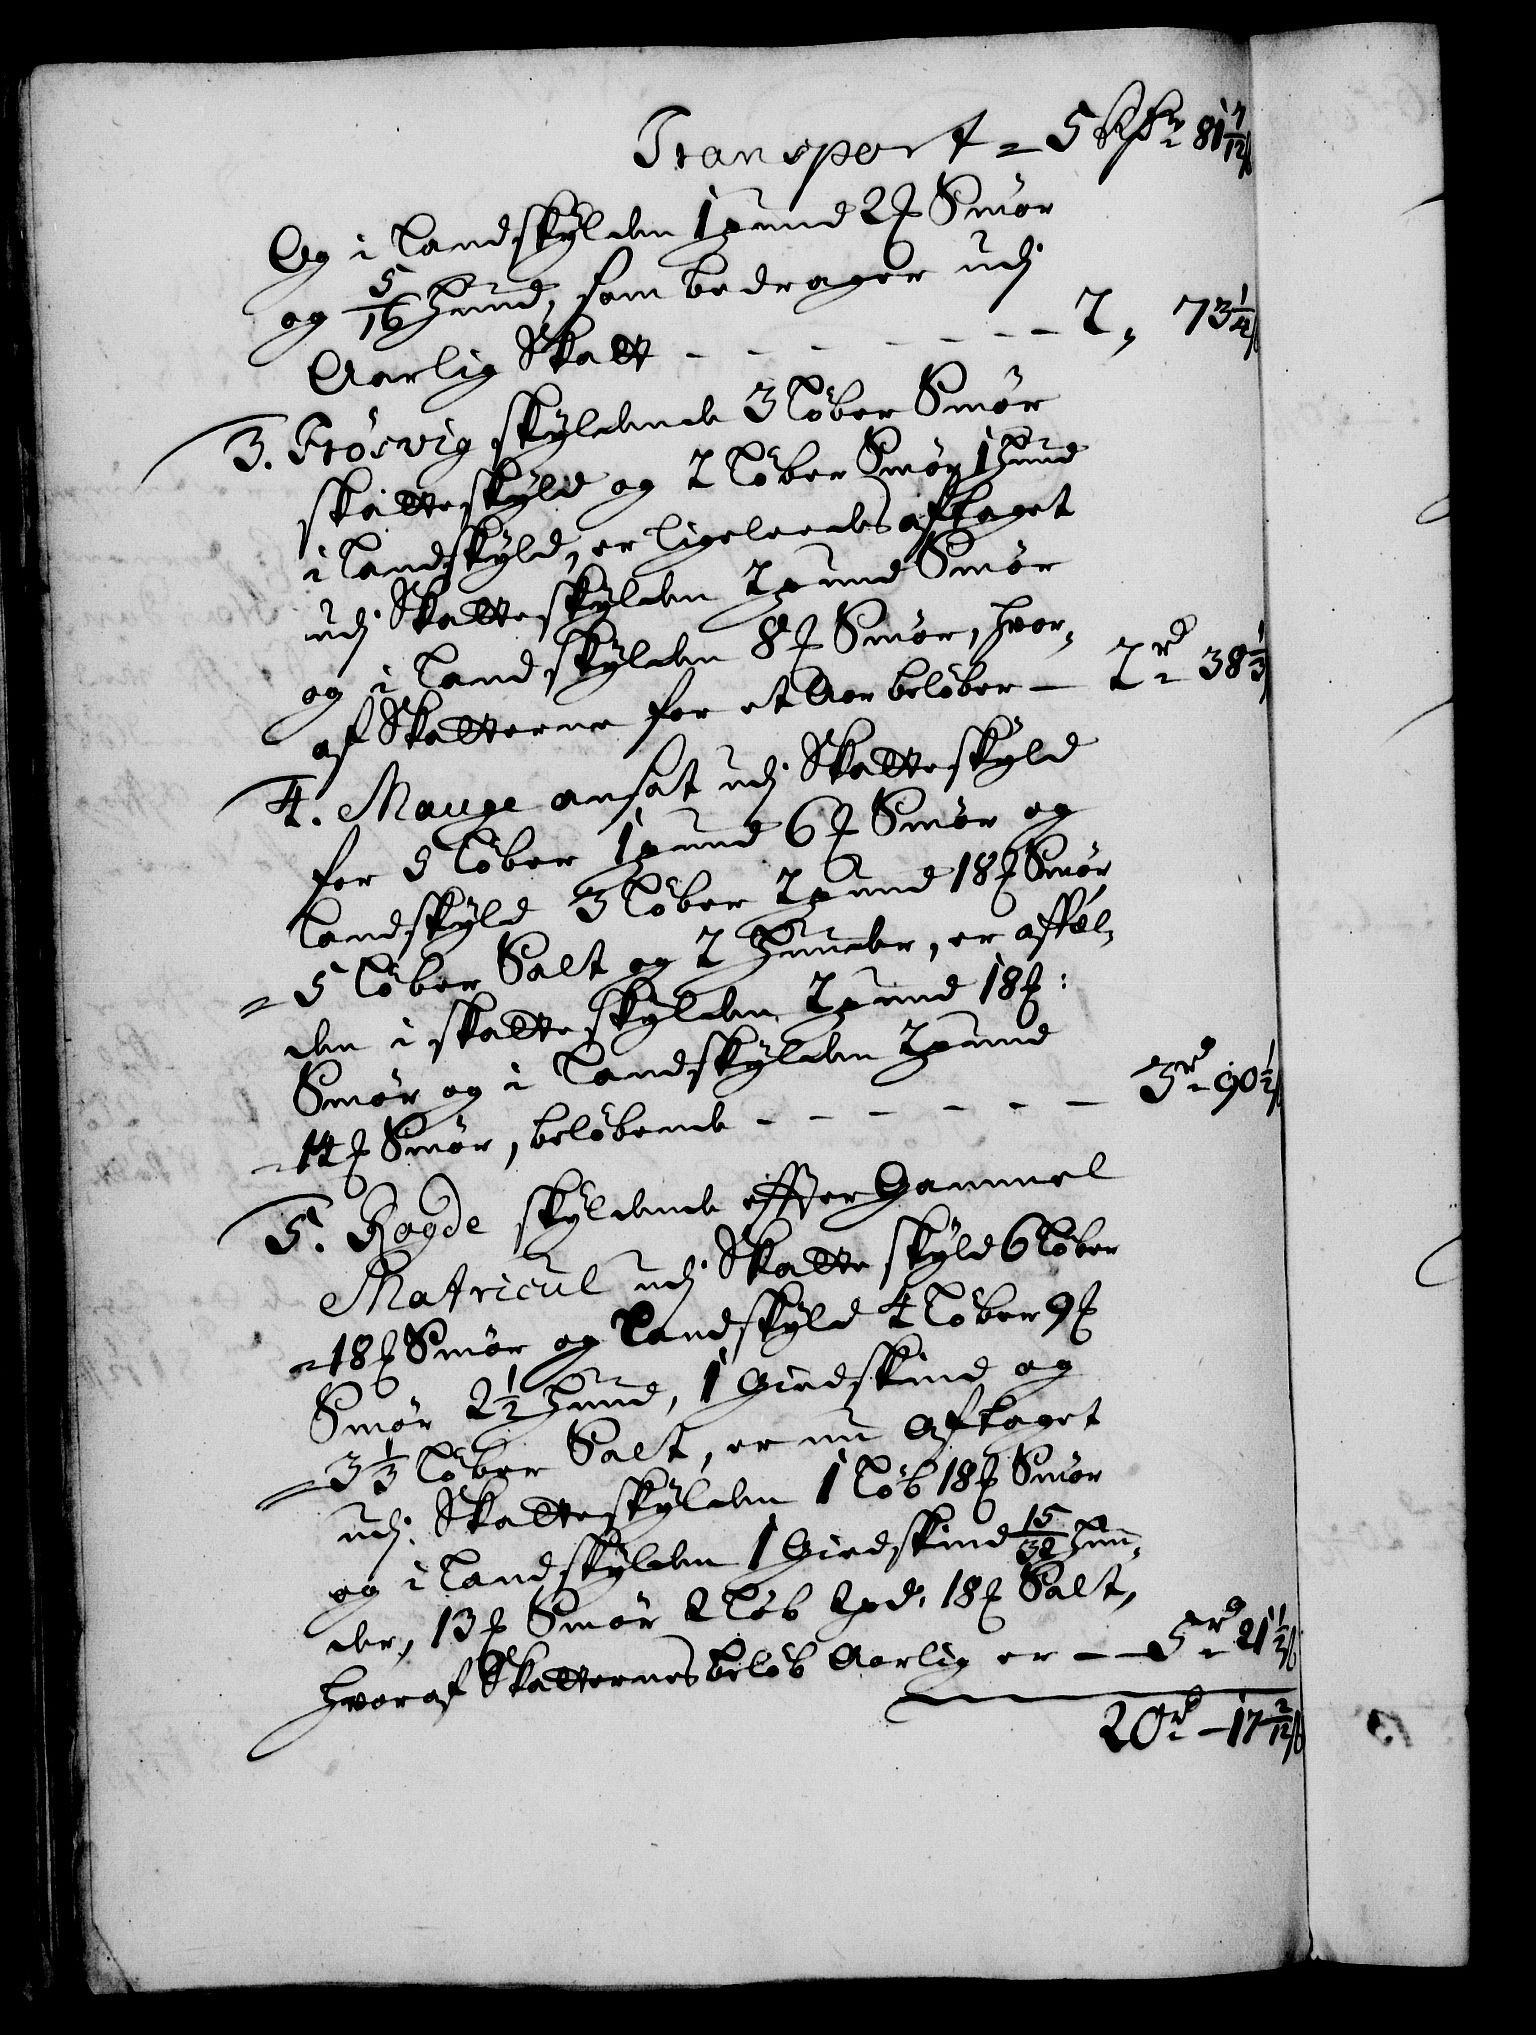 Transport = 5 Rdr 81 7/12 ß
Og i Landskylden 1 pund 2 ℔ Smør
og 5/16 Hund, som bedrager udj
Aarlig Skatt - - - - - - - - 2, 73 1/4 ß
3. Frösvig skyldende 3 Løber Smør
skatteskyld og 2 Løber Smør 1 Hund
i Landskyld, er ligeleedes aftaget
udj Skatteskylden 2 pund Smør
og i Landskylden 8 ℔ Smør, hvor-
af Skatterne for et Aar beløber - 2 rd 38 1/3 ß
4. Mauge ansat udj Skatteskyld
for 5 Løber 1 pund 6 ℔ Smør og
Landskyld 3 Løber 2 pund 18 ℔ Smør
= 5 Løber Salt og 2 Hunder, er affel-
den i skatteskylden 2 pund 18 ℔:
Smør og i Landskylden 2 pund
- 14 ℔ Smør, beløbende - - - - - - 3 rd - 90 1/2 ß
5. Rogde skyldende effter Gammel
Matricul udj Skatteskyld 6 Løber
- 18 ℔ Smør og Landskyld 4 Løber 9 ℔
Smør 2 1/2 Hund, 1 Giedskind og
= 3 1/3 Løber Salt, er nu Aftaget
udj Skatteskylden 1 Løb 18 ℔ Smør
og i Landskylden 1 Giedskind 15/32 Hun-
der, 13 ℔ Smør 2 Løb 2 pd. 18 ℔ Salt,
hvoraf Skatternes beløb Aarlig er - - 5 rd 21 1/2 ß
20 rd - 17 2/12 ß